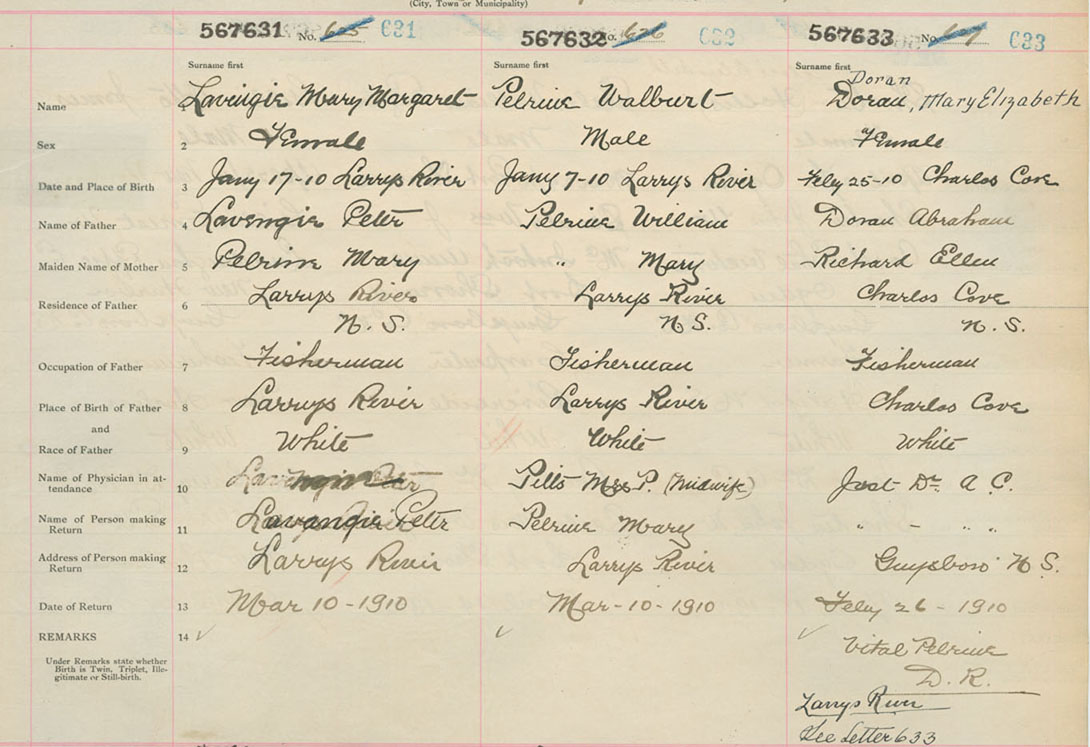 (City, Town or Municipality)
567631 No. 625 631 567632 No. 626 632 567633 No. 633
Surname first Surname first Surname first Doran
Name 1 Lavingie Mary Margaret Pelrine Walburt Doran, Mary Elizabeth
Sex 2 Female Male Female
Date and Place of Birth 3 Jany 17-10 Larrys River Jany 7-10 Larrys River Feby 25-10 Charlos Cove
Name of Father 4 Lavengie Peter Pelrine William Doran Abraham
Maiden Name of Mother 5 Pelrine Mary " Mary Richard Ellen
Residence of Father 6 Larrys River Larrys River Charlos Cove
N. S. N S. N. S.
Occupation of Father 7 Fisherman Fisherman Fisherman
Place of Birth of Father 8 Larrys River Larrys River Charlos Cove
and
Race of Father 9 White White White
Name of Physician in attendance 10 Lavengie Peter Pitts Mrs P. (Midwife) Jost Dr. A C.
Name of Person making Return 11 Lavangie Peter Pelrine Mary " - " "
Address of Person making Return 12 Larrys River Larrys River Guysboro N S.
Date of Return 13 Mar 10-1910 Mar-10-1910 Feby 26-1910
REMARKS 14 Vital Pelrine
Under Remarks state whether
Birth is Twin, Triplet, Ille-
gitimate or Still-birth.
D. R.
Larrys River
See Letter 633